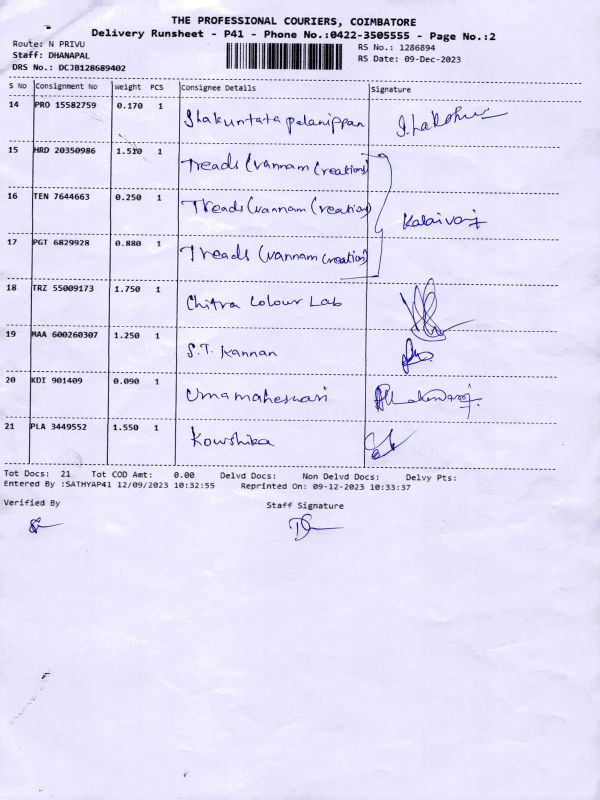 THE PROFESSIONAL COURIERS, COIMBATORE
Delivery Runsheet - P41 - Phone No.:0422-3505555 - Page No.:2
Route: N PRIVU
RS No.: 1286894
Staff: DHANAPAL
RS Date: 09-Dec-2023
DRS No.: DCJB128689402
S No Consignment No Weight PCS Consignee Details Signature
14 PRO 15582759 0.170 1 Shakuntata pelanippan
15 HRD 20350986 1.510 1 Treads (vannam Creation)
16 TEN 7644663 0.250 1 Treads (vannam Creation) Kalaivani
17 PGT 6829928 0.880 1 Treads (vannam Creation)
18 TRZ 55009173 1.750 1 Chitra Colour Lab
19 MAA 600260307 1.250 1 S.T. Kannan
20 KDI 901409 0.090 1 Umamaheswari
21 PLA 3449552 1.550 1 Kowshika
Tot Docs: 21 Tot COD Amt: 0.00 Delvd Docs: Non Delvd Docs: Delvy Pts:
Entered By :SATHYAP41 12/09/2023 10:32:55 Reprinted On: 09-12-2023 10:33:37
Verified By Staff Signature